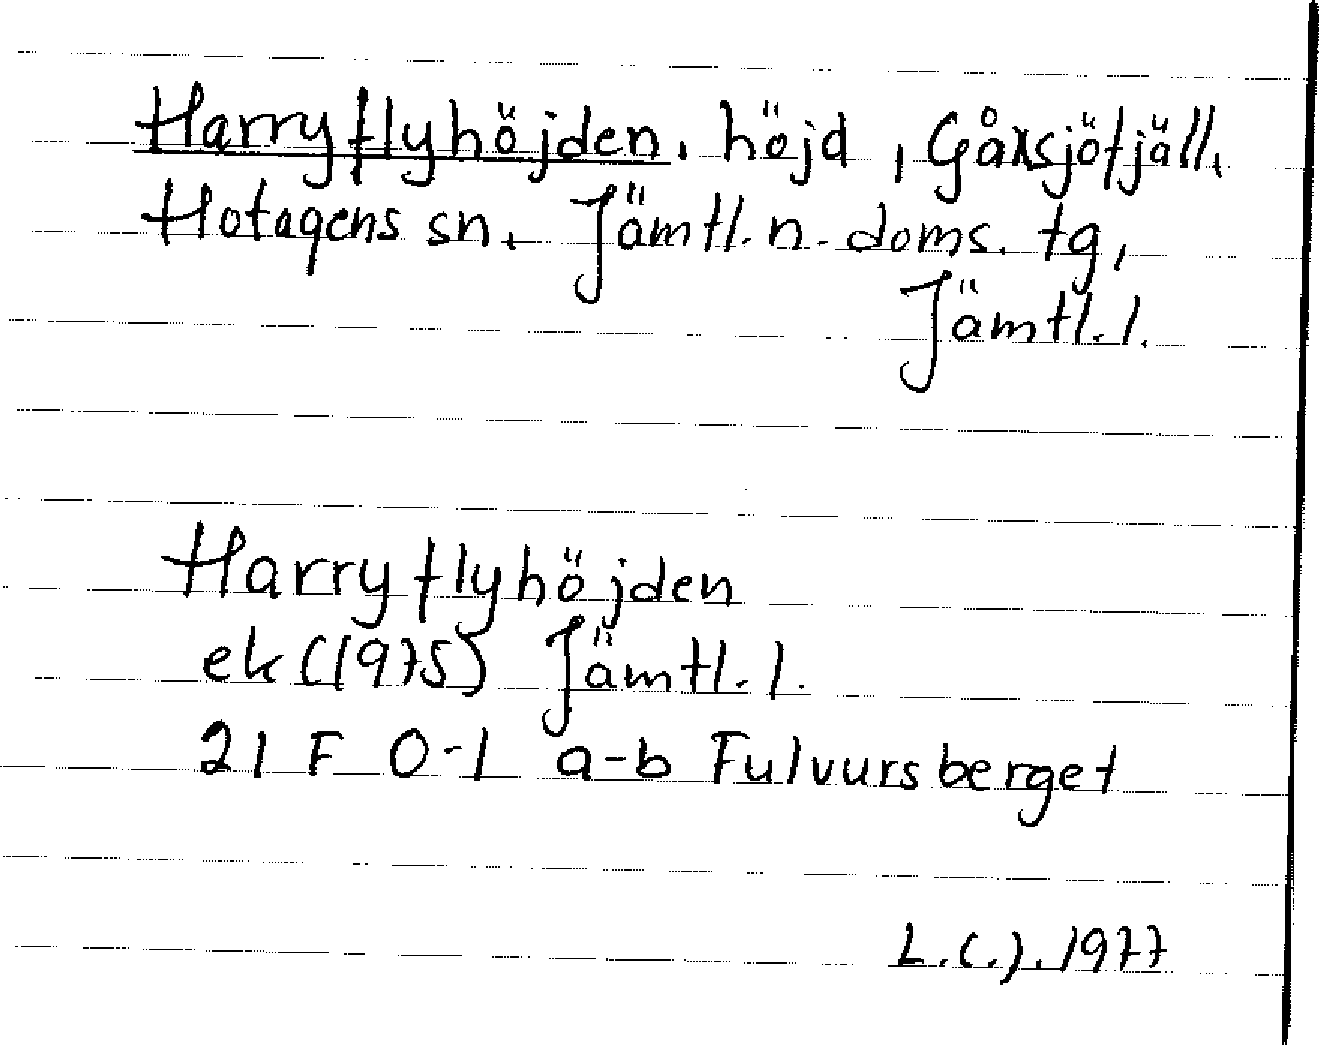 Harryflyhöjden, höjd, Gåxsjöfjäll,
Hotagens sn, Jämtl. n. doms. tg,
Jämtl. l.
Harryflyhöjden
ek (1975) Jämtl. l.
21 F 0-1 a-b Fulvursberget
L.C.J. 1977